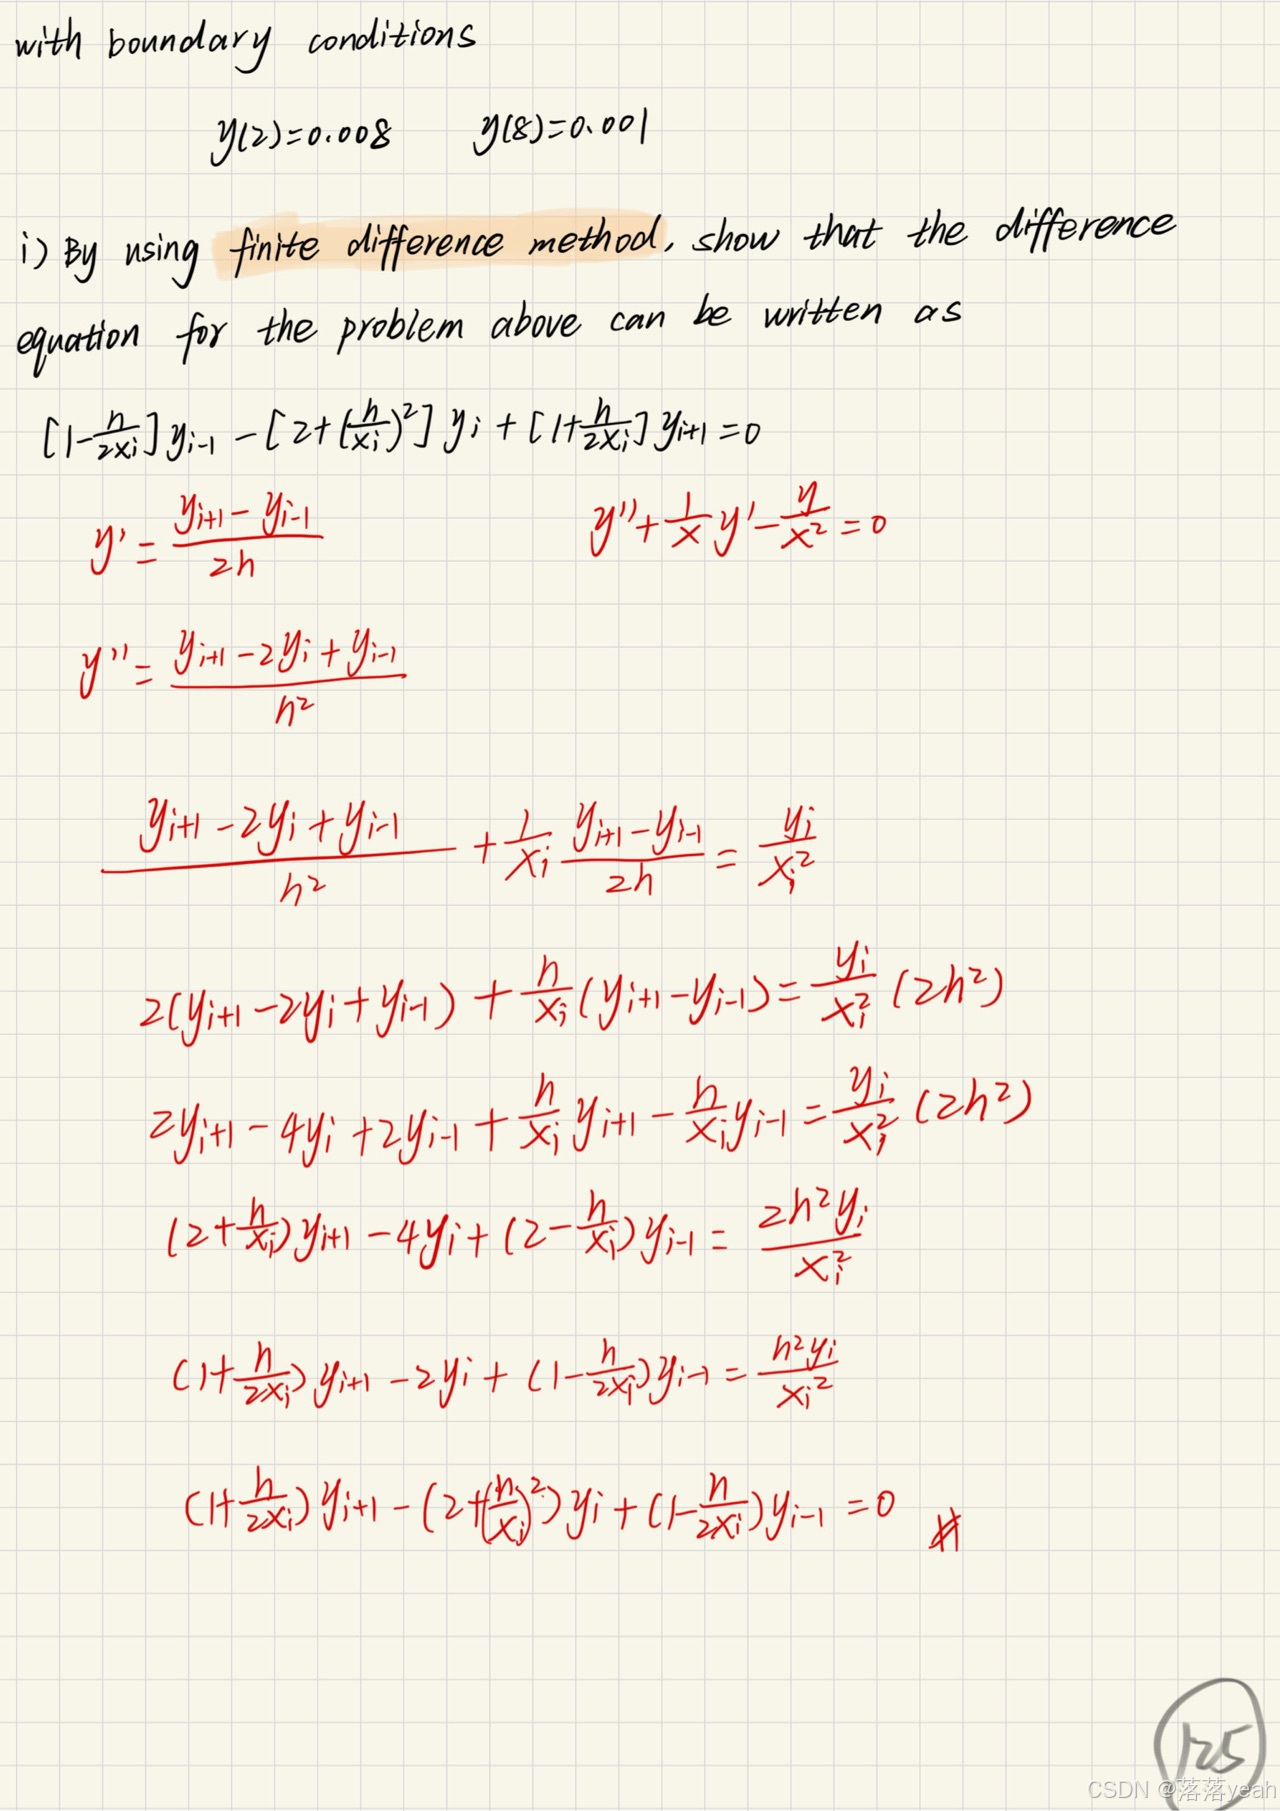 with boundary conditions
y(2)=0.008 y(8)=0.001
i) By using finite difference method, show that the difference
equation for the problem above can be written as
[1-h/2xi]yi-1 - [2+(h/xi)²]yi + [1+h/2xi]yi+1 = 0
y' = (yi+1 - yi-1)/2h y'' + 1/x y' - y/x² = 0
y'' = (yi+1 - 2yi + yi-1)/h²
(yi+1 - 2yi + yi-1)/h² + 1/xi (yi+1 - yi-1)/2h = yi/xi²
2(yi+1 - 2yi + yi-1) + h/xi (yi+1 - yi-1) = yi/xi² (2h²)
2yi+1 - 4yi + 2yi-1 + h/xi yi+1 - h/xi yi-1 = yi/xi² (2h²)
(2+h/xi)yi+1 - 4yi + (2-h/xi)yi-1 = 2h²yi/xi²
(1+h/2xi)yi+1 - 2yi + (1-h/2xi)yi-1 = h²yi/xi²
(1+h/2xi)yi+1 - (2+(h/xi)²)yi + (1-h/2xi)yi-1 = 0 #
125
CSDN @落落yeah